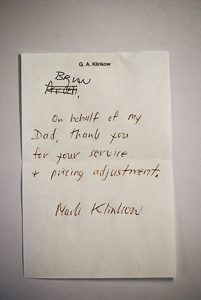 G. A. Klinkow
Bryan
On behalf of my
Dad, thank you
for your service
+ pricing adjustment.
Mark Klinkow